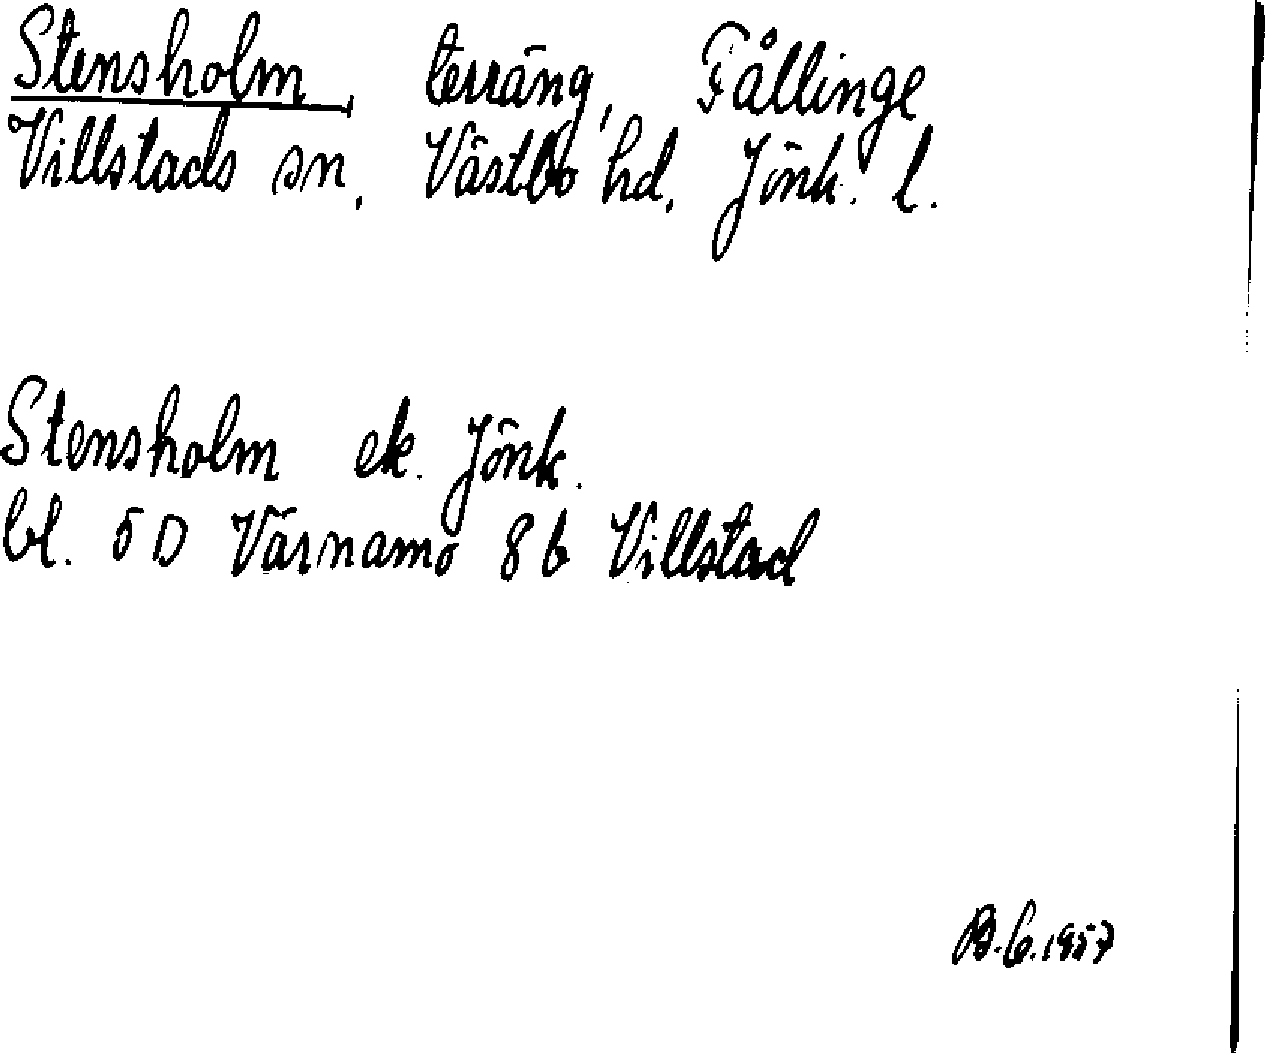 Stensholm, terräng, Fållinge
Villstads sn, Västbo hd, Jönk. l.
Stensholm ek. Jönk.
bl. 5 D Värnamo 8 b Villstad
B.G. 1957